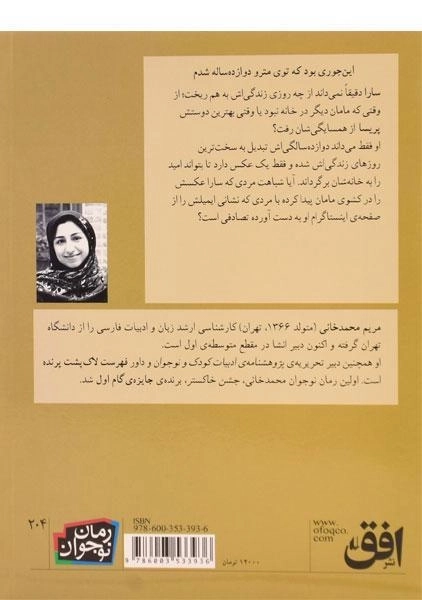 این‌جوری بود که توی مترو دوازده‌ساله شدم
سارا دقیقاً نمی‌داند از چه روزی زندگی‌اش به هم ریخت؛ از
وقتی که مامان دیگر در خانه نبود یا وقتی بهترین دوستش
پریسا از همسایگی‌شان رفت؟
او فقط می‌داند دوازده‌سالگی‌اش تبدیل به سخت‌ترین
روزهای زندگی‌اش شده و فقط یک عکس دارد تا بتواند امید
را به خانه‌شان برگرداند. آیا شباهت مردی که سارا عکسش
را در کشوی مامان پیدا کرده با مردی که نشانی ایمیلش را از
صفحه‌ی اینستاگرام او به دست آورده تصادفی است؟
مریم محمدخانی (متولد ۱۳۶۶، تهران) کارشناسی ارشد زبان و ادبیات فارسی را از دانشگاه
تهران گرفته و اکنون دبیر انشا در مقطع متوسطه‌ی اول است.
او همچنین دبیر تحریریه‌ی پژوهشنامه‌ی ادبیات کودک و نوجوان و داور فهرست لاک‌پشت پرنده
است. اولین رمان نوجوان محمدخانی، جشن خاکستر، برنده‌ی جایزه‌ی گام اول شد.
نشر افق
www.
ofoqco.
com
ISBN
978-600-353-393-6
9 786003 533936
۱۴۰۰۰ تومان
رمان
نوجوان
۲۰۴